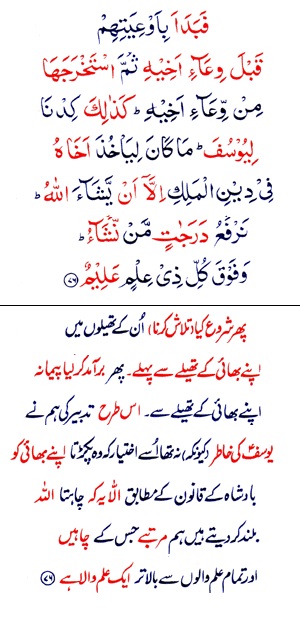 فَبَدَاَ بِاَوْعِيَتِهِمْ
قَبْلَ وِعَآءِ اَخِيْهِ ثُمَّ اسْتَخْرَجَهَا
مِنْ وِّعَآءِ اَخِيْهِ ؕ كَذٰلِكَ كِدْنَا
لِيُوْسُفَ ؕ مَا كَانَ لِيَاْخُذَ اَخَاهُ
فِيْ دِيْنِ الْمَلِكِ اِلَّآ اَنْ يَّشَآءَ اللّٰهُ ؕ
نَرْفَعُ دَرَجٰتٍ مَّنْ نَّشَآءُ ؕ
وَفَوْقَ كُلِّ ذِيْ عِلْمٍ عَلِيْمٌ ﴿۷۶﴾
پھر شروع کیا (تلاش کرنا) اُن کے تھیلوں میں
اپنے بھائی کے تھیلے سے پہلے۔ پھر برآمد کر لیا پیمانہ
اپنے بھائی کے تھیلے سے۔ اس طرح تدبیر کی ہم نے
یوسفؑ کی خاطر (کیونکہ) نہ تھا اُسے اختیار کہ وہ پکڑتا اپنے بھائی کو
بادشاہ کے قانون کے مطابق الّا یہ کہ چاہتا اللہ
بلند کر دیتے ہیں ہم مرتبے جس کے چاہیں
اور تمام علم والوں سے بالاتر ایک علم والا ہے ﴿۷۶﴾